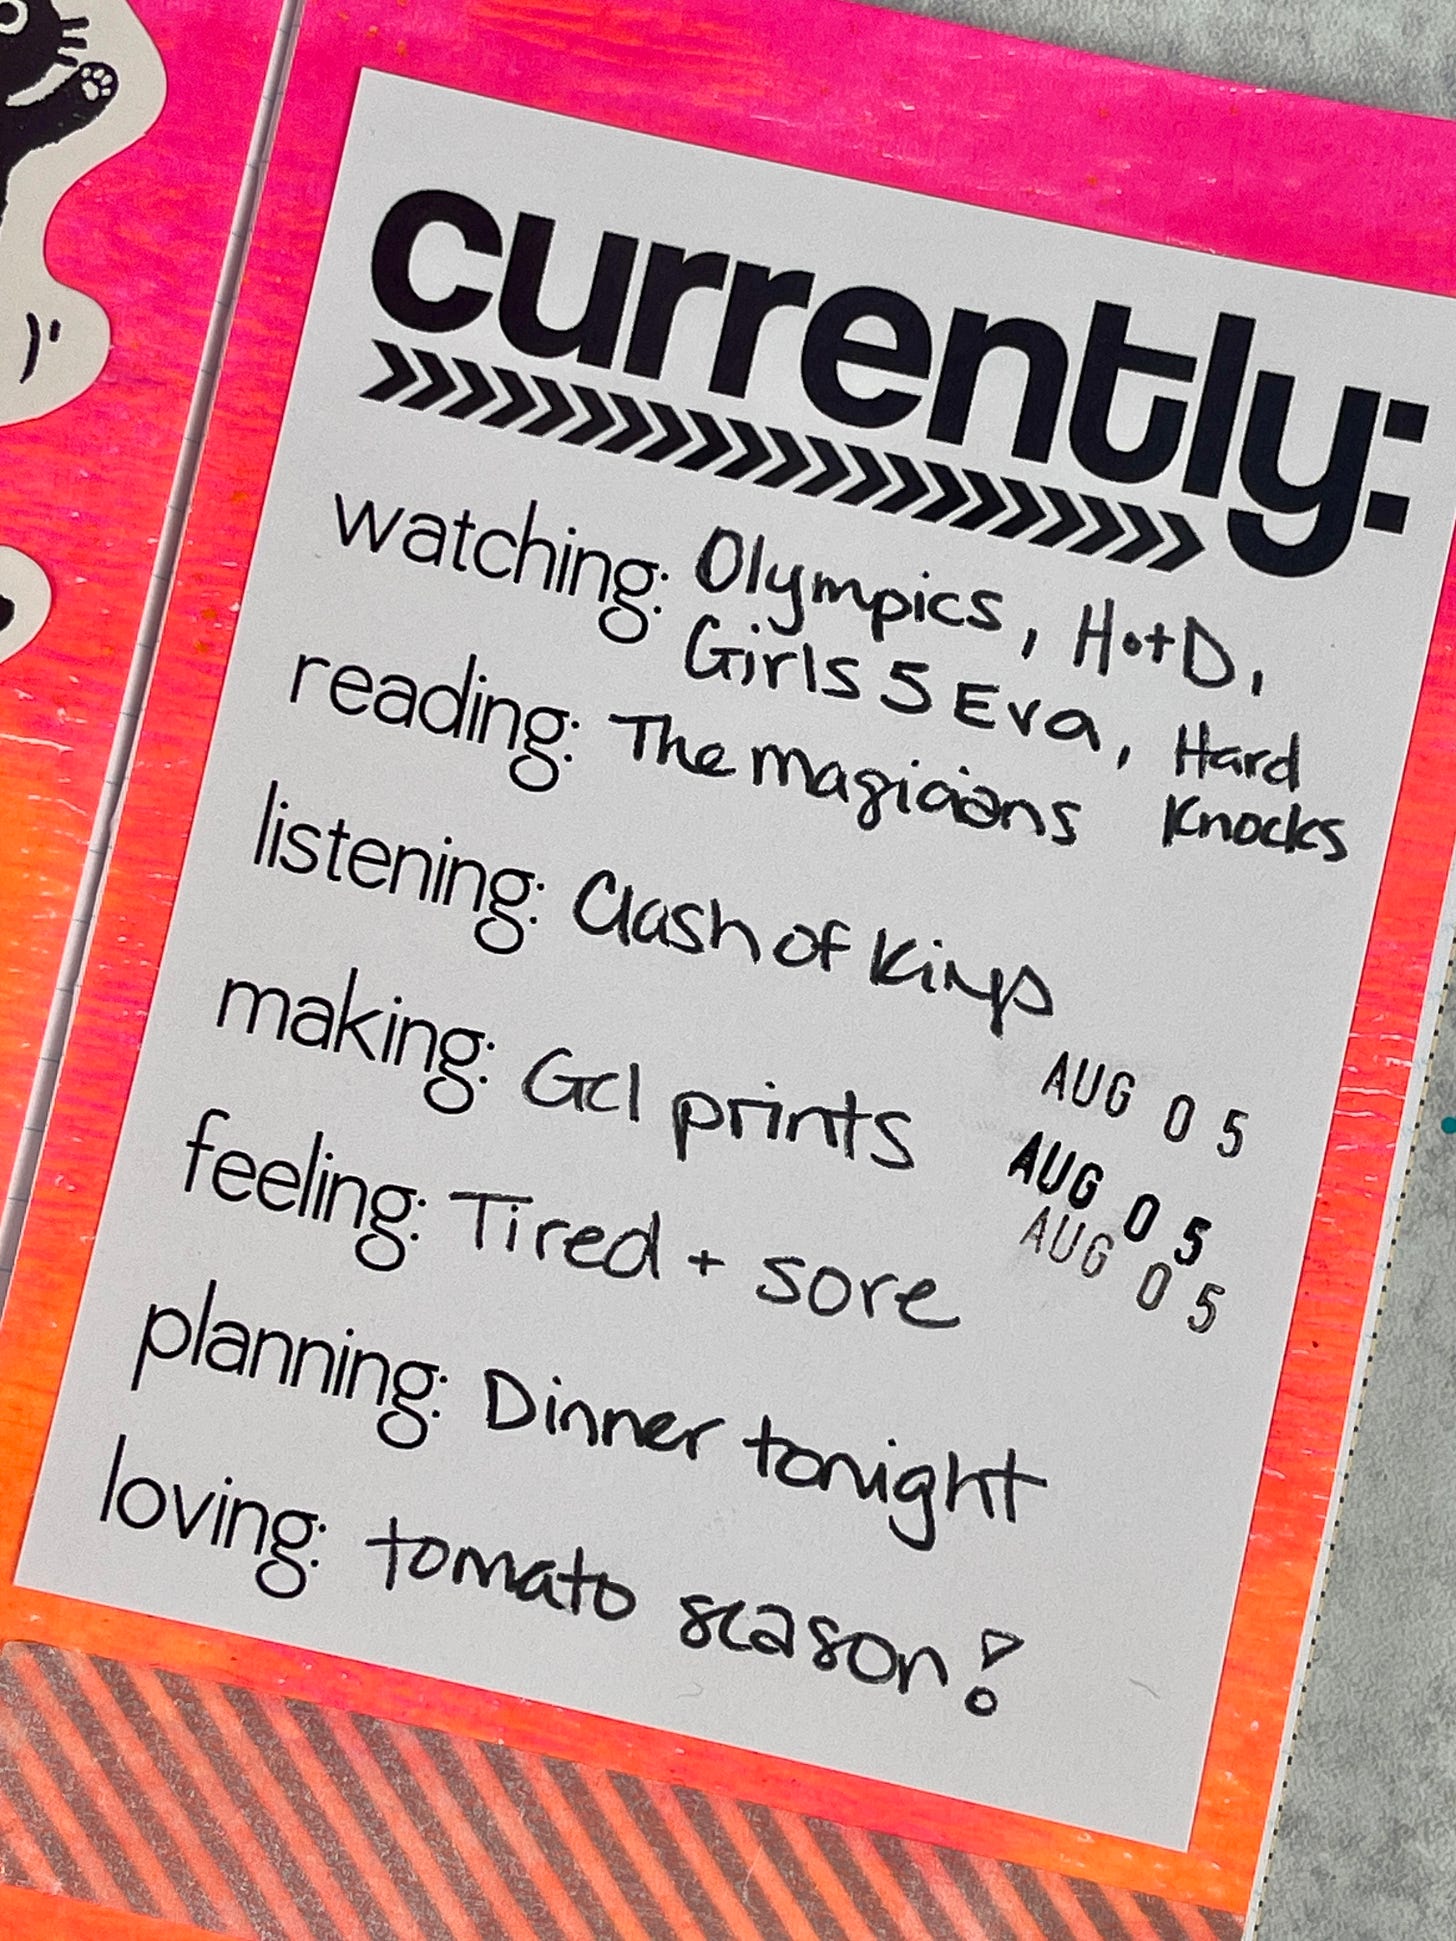 currently:
watching: Olympics, HotD,
Girls 5 Eva, Hard
Knocks
reading: The Magicians
listening: Clash of Kings
making: Gel prints
AUG 05
AUG 05
AUG 05
feeling: Tired + sore
planning: Dinner tonight
loving: tomato season!